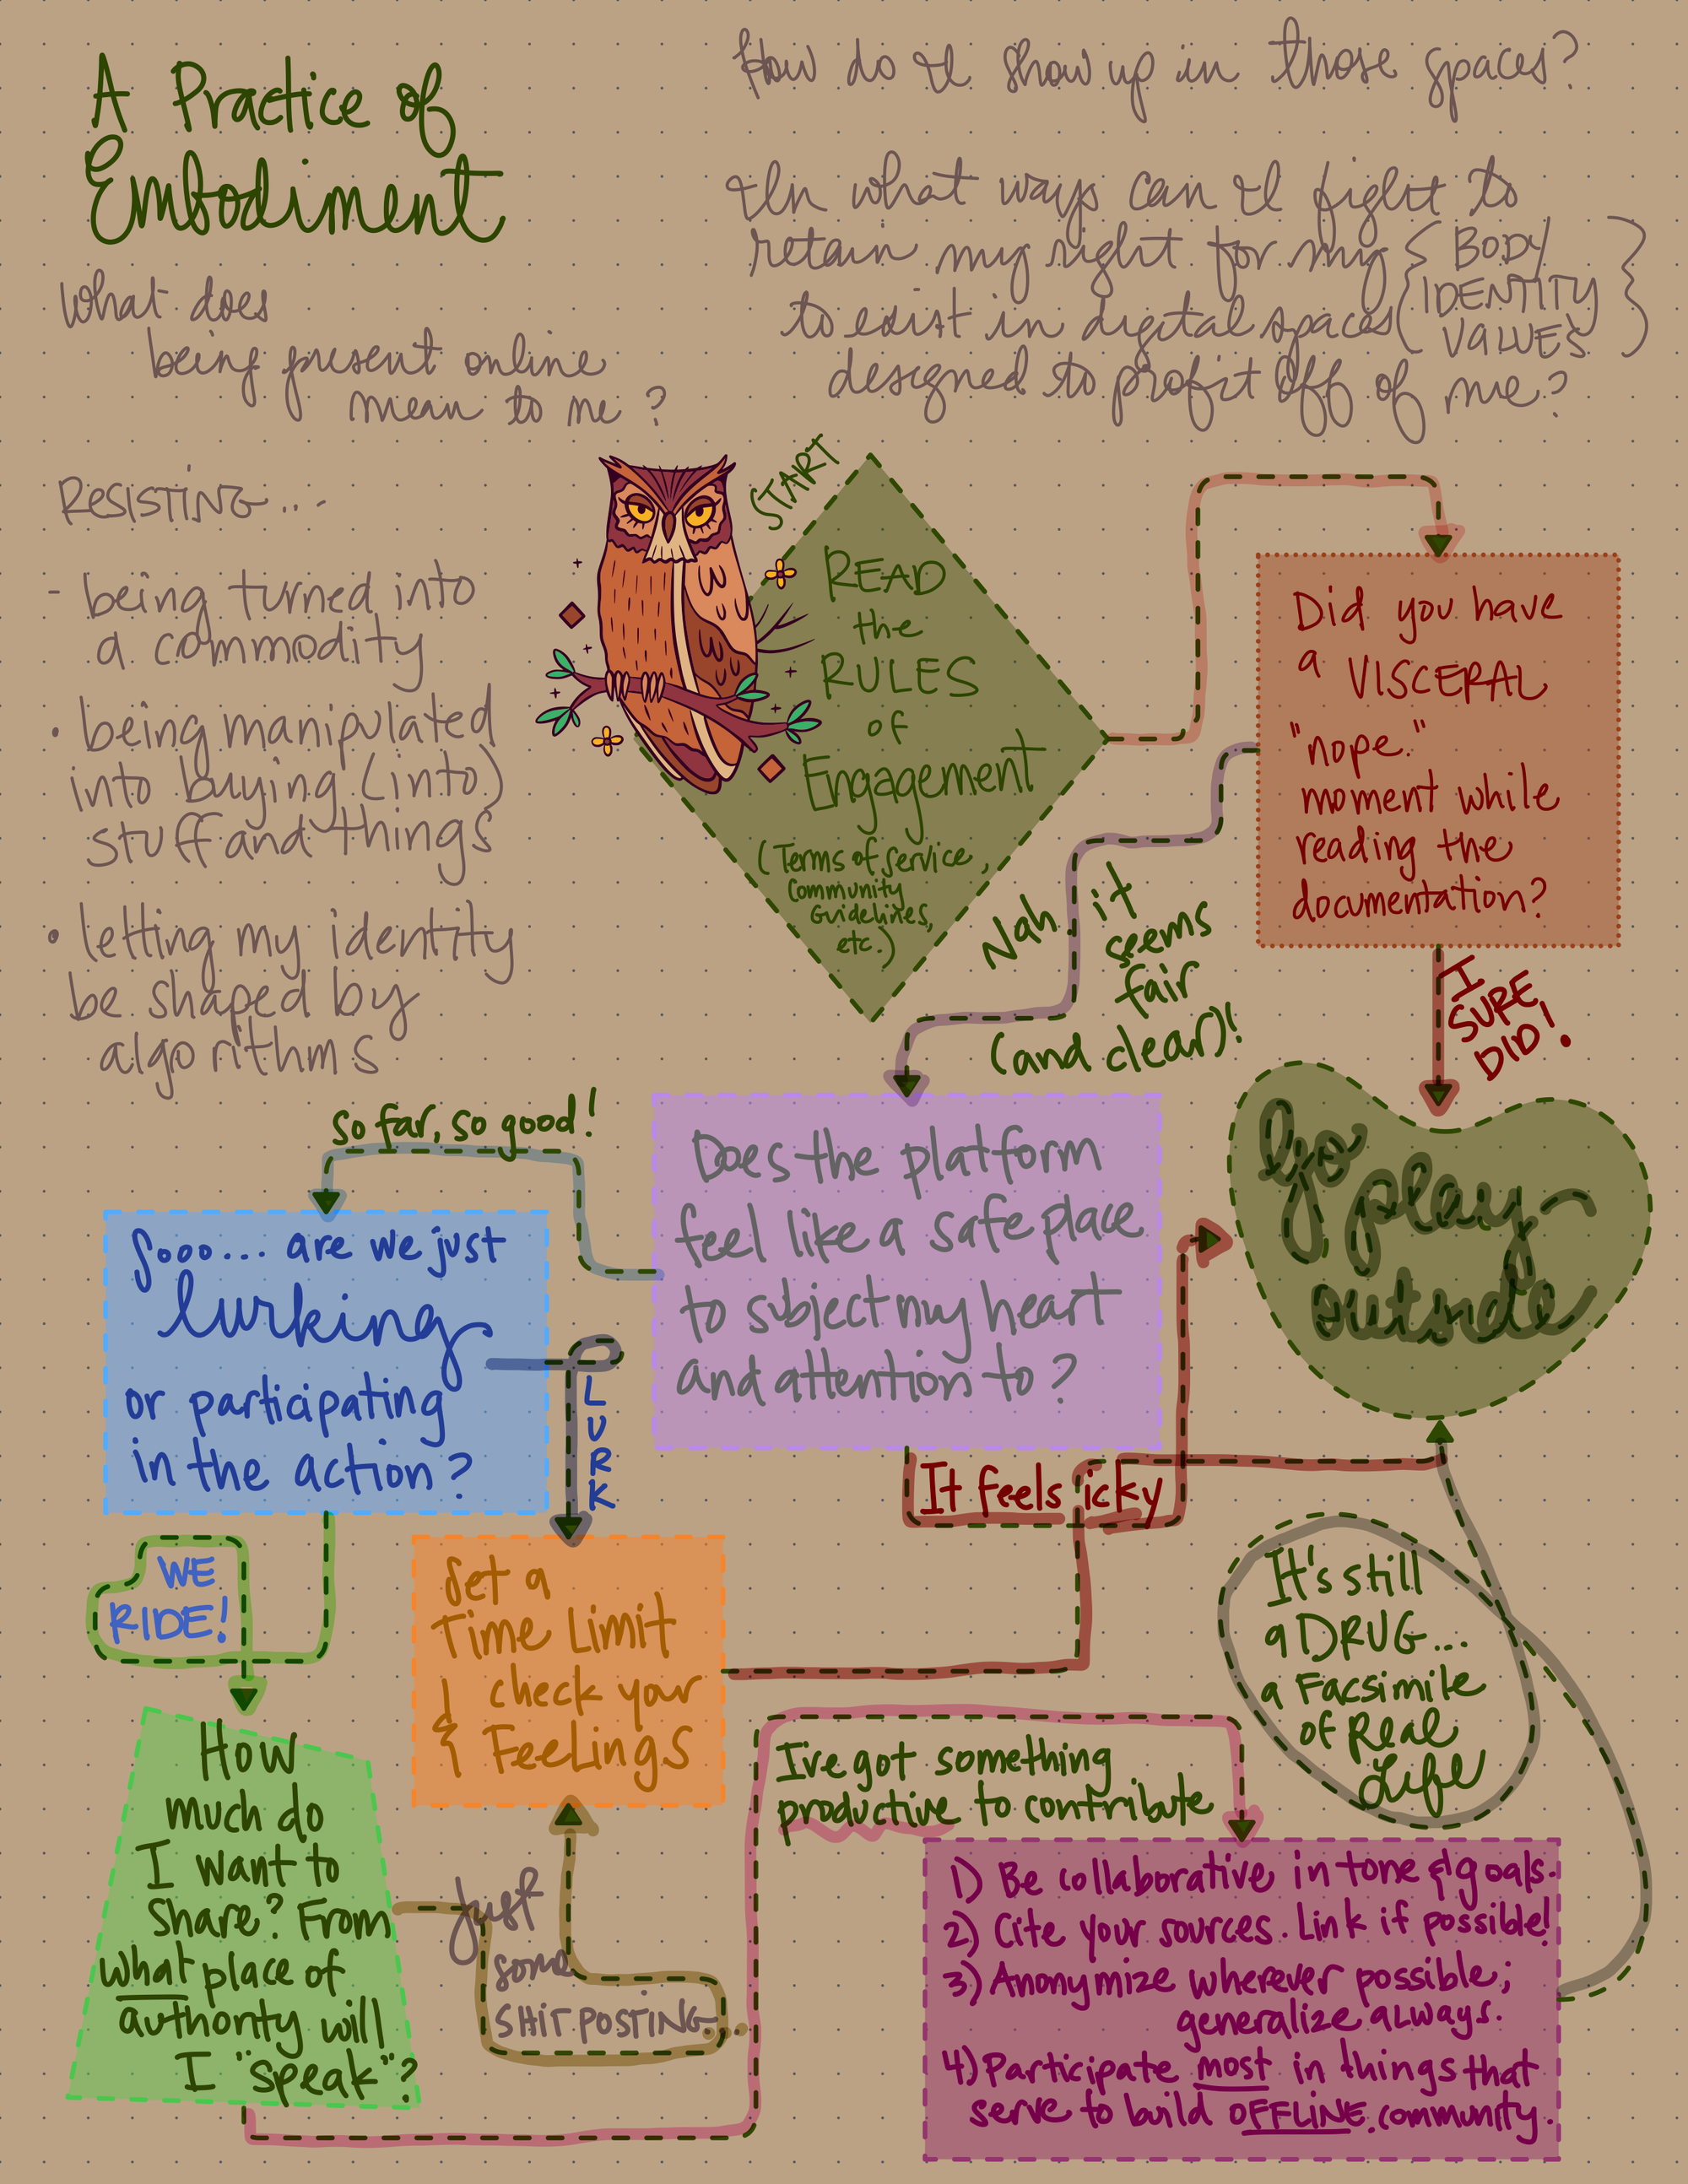 A Practice of
Embodiment
What does
being present online
mean to me?
How do I show up in those spaces?
In what ways can I fight to
retain my right for my { BODY/
to exist in digital spaces { IDENTITY }
VALUES
designed to profit off of me?
RESISTING...-
- being turned into
a commodity
• being manipulated
into buying (into)
stuff and things
• letting my identity
be shaped by
algorithms
START
READ
the
RULES
of
Engagement
(Terms of Service,
Community
Guidelines,
etc.)
Did you have
a VISCERAL
"nope."
moment while
reading the
documentation?
Nah it
seems
fair
(and clear)!
I
SURE
DID!
Go
play
outside
Does the platform
feel like a safe place
to subject my heart
and attention to?
so far, so good!
Sooo... are we just
lurking
or participating
in the action?
LURK
It feels icky
WE
RIDE!
Set a
Time Limit
& check your
Feelings
It's still
a DRUG...
a Facsimile
of Real
Life
How
much do
I want to
share? From
what place of
authority will
I "speak"?
Just
some
SHITPOSTING...
I've got something
productive to contribute
1) Be collaborative in tone & goals.
2) Cite your sources. Link if possible!
3) Anonymize wherever possible;
generalize always.
4) Participate most in things that
serve to build OFFLINE community.